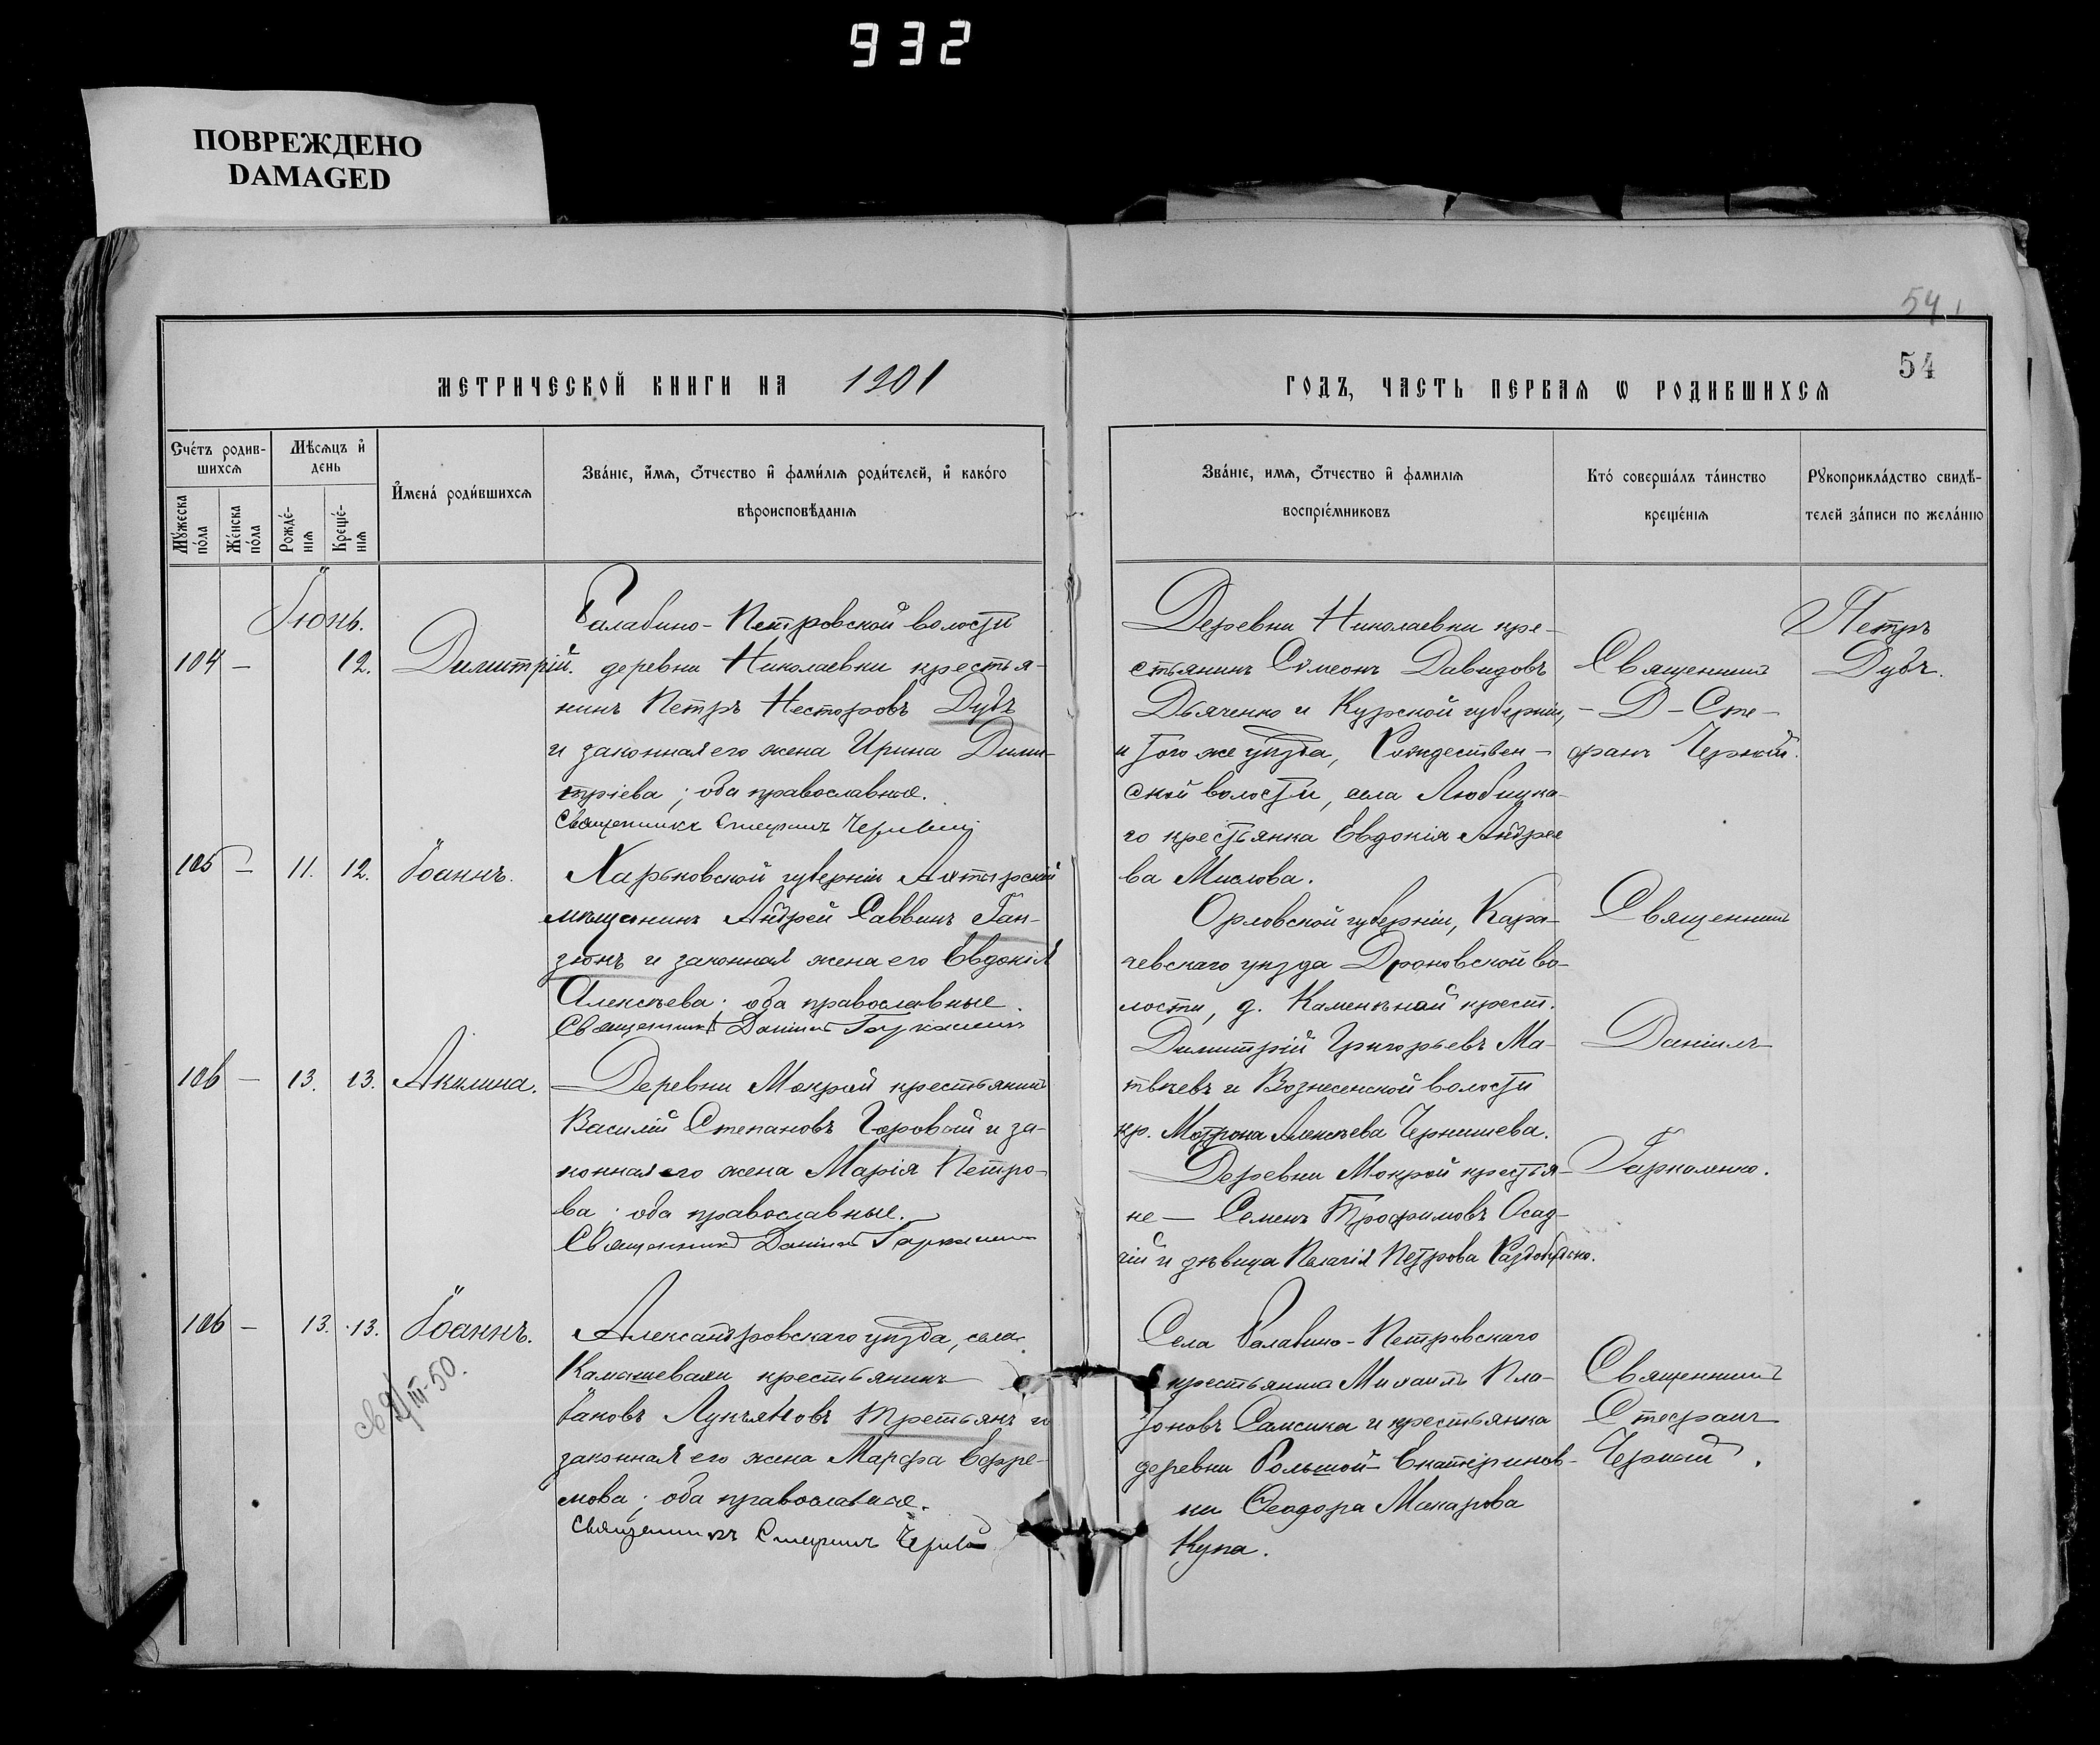 932
ПОВРЕЖДЕНО
DAMAGED
54
54
МЕТРИЧЕСКОЙ КНИГИ НА 1901
ГОДЪ, ЧАСТЬ ПЕРВАЯ Ѡ РОДИВШИХСЯ
Счетъ родив-
шихся
Мѣсяцъ и
день
Мужеска
пола
Женска
пола
Рожде-
нія
Креще-
нія
Имена родившихся
Званіе, имя, отчество и фамилія родителей, и какого
вѣроисповѣданія
Званіе, имя, отчество и фамилія
воспріемниковъ
Кто совершалъ таинство
крещенія
Рукоприкладство свидѣ-
телей записи по желанію
Іюнь.
104 — 12. Димитрій.
Балабино-Петровской волости
деревни Николаевки крестья-
нинъ Петръ Несторовъ Дубъ
и законная его жена Ирина Дими-
тріева; оба православные.
Священникъ Стефанъ Черный
Деревни Николаевки кре-
стьянинъ Сѵмеонъ Давидовъ
Дьяченко и Курской губерніи,
и того же уѣзда, Рождествен-
ской волости, села Любицка-
го крестьянка Евдокія Андрее
ва Мислова.
Священникъ
— Д — Сте-
фанъ Черный.
Петръ
Дубъ.
105 — 11. 12. Іоаннъ.
Харьковской губерніи Ахтырскій
мѣщанинъ Андрей Саввинъ Ган-
зюнъ и законная жена его Евдокія
Алексѣева; оба православные.
Священникъ Даніилъ Гаркаленко
Орловской губерніи, Кара-
чевскаго уѣзда Дроновской во-
лости, д. Каменьной крест.
Димитрій Григорьевъ Ма-
твѣевъ и Вознесенской волости
кр. Мотрона Алексѣева Чернишева.
Священникъ
Даніилъ
Гаркаленко.
106 — 13. 13. Акилина.
Деревни Мокрой крестьянинъ
Василій Степановъ Горовой и за-
конная его жена Марія Петро-
ва; оба православные.
Священникъ Даніилъ Гаркаленко
Деревни Мокрой крестья-
не — Семенъ Трофимовъ Осад-
чій и дѣвица Пелагія Петрова
106 — 13. 13. Іоаннъ.
III-50.
Александровскаго уѣзда, села
Камышевахи крестьянинъ
Іаковъ Лукьяновъ Третьякъ и
законная его жена Марфа Ефре-
мова; оба православные.
Священникъ Стефанъ Черный
Села Балабино-Петровскаго
крестьянина Михаилъ Пла-
тоновъ Самсика и крестьянка
деревни Большой-Екатеринов-
ки Ѳеодора Макарова
Купа.
Священникъ
Стефанъ
Черный.